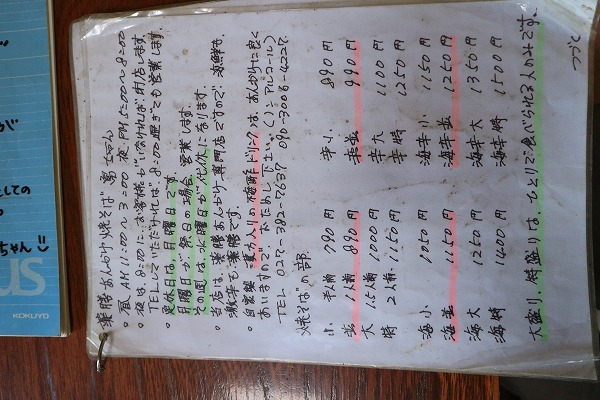 辛勝あんかけ焼そば 萬ちゃん
・昼 AM 11:00~3:00 夜 PM 5:00~8:00
・夜は8:00に、お客様がいなければ、閉店します
TELしていただければ、8:00過ぎでも営業します
・定休日は、月曜日です。
月曜日が祭日の場合営業します。
その間は、水曜日が代休になります。
・当店は、あんかけ専門店ですので、海鮮も、
激辛も
・自家製 入りの梅酢ドリンクは、あんかけに良く
あいますので、おためし下さい。(ノンアルコール)
TEL 090-3006-4227
焼そばの部
小 半人前 790円 辛小 890円
並 1人前 890円 辛並 990円
大 1.5人前 1000円 辛大 1100円
特 2人前 1150円 辛特 1250円
海小 1050円 海辛小 1150円
海並 1150円 海辛並 1250円
海大 1250円 海辛大 1350円
海特 1400円 海辛特 1500円
大盛り、特盛りは、ひとりで食べられる人のみです。
つづく
KOKUYO